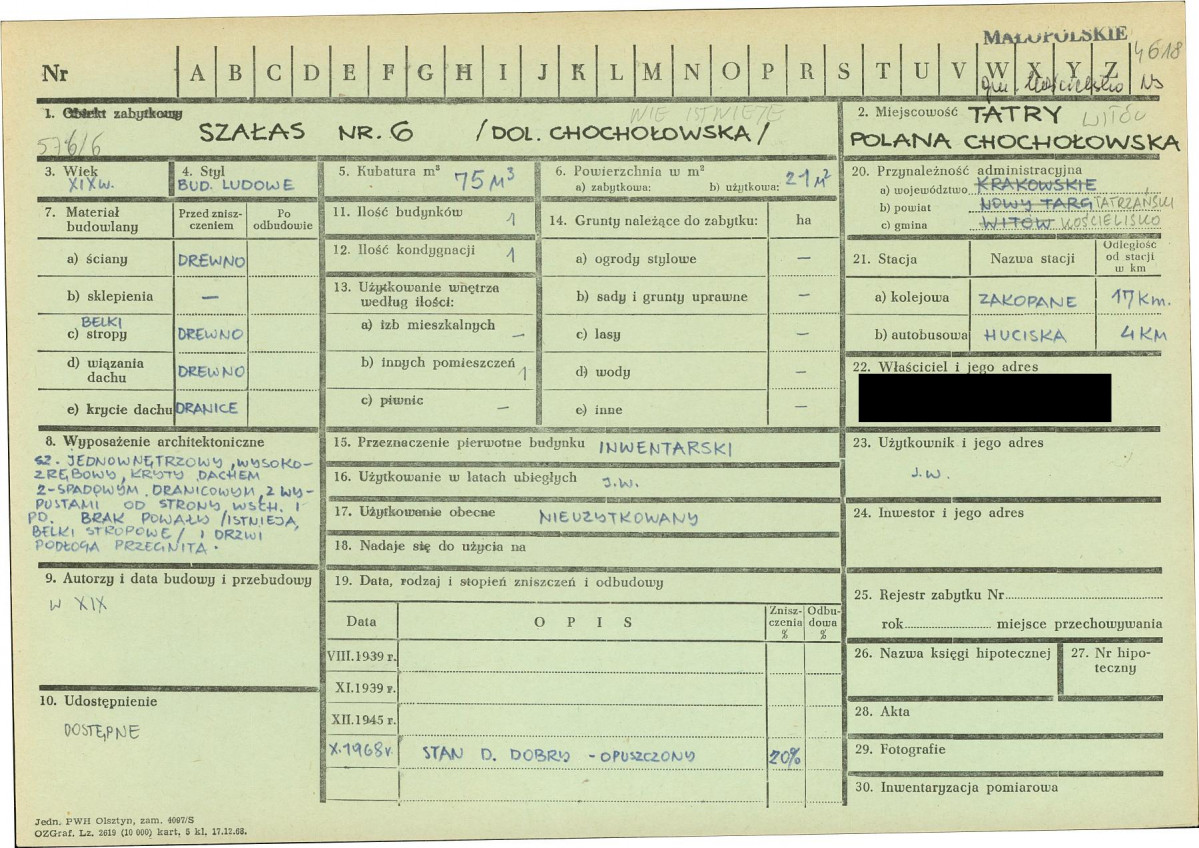 MAŁOPOLSKIE
4618
Nr A B C D E F G H I J K L M N O P R S T U V W X Y Z
gm. Kościelisko NS
1. Obiekt zabytkowy
NIE ISTNIEJE
576/6
SZAŁAS NR. 6 /DOL. CHOCHOŁOWSKA/
2. Miejscowość TATRY
WITÓW
POLANA CHOCHOŁOWSKA
3. Wiek
XIX w.
4. Styl
BUD. LUDOWE
5. Kubatura m³ 75 M³
6. Powierzchnia w m²
a) zabytkowa: b) użytkowa: 21 M²
20. Przynależność administracyjna
a) województwo KRAKOWSKIE
b) powiat NOWY TARG TATRZAŃSKI
c) gmina WITÓW KOŚCIELISKO
7. Materiał budowlany
Przed zniszczeniem
Po odbudowie
a) ściany DREWNO
b) sklepienia —
BELKI
c) stropy DREWNO
d) wiązania dachu DREWNO
e) krycie dachu DRANICE
11. Ilość budynków 1
12. Ilość kondygnacji 1
13. Użytkowanie wnętrza
według ilości:
a) izb mieszkalnych —
b) innych pomieszczeń 1
c) piwnic —
14. Grunty należące do zabytku: ha
a) ogrody stylowe —
b) sady i grunty uprawne —
c) lasy —
d) wody —
e) inne —
21. Stacja Nazwa stacji Odległość od stacji w km
a) kolejowa ZAKOPANE 17 Km.
b) autobusowa HUCISKA 4 KM
22. Właściciel i jego adres
8. Wyposażenie architektoniczne
SZ. JEDNOWNĘTRZOWY, WYSOKO-
ZRĘBOWY, KRYTY DACHEM
2-SPADOWYM, DRANICOWYM, Z WY-
PUSTAMI OD STRONY WSCH. I
PD. BRAK POWAŁY /ISTNIEJĄ
BELKI STROPOWE/ I DRZWI
PODŁOGA PRZEGNITA.
15. Przeznaczenie pierwotne budynku INWENTARSKI
16. Użytkowanie w latach ubiegłych J.W.
17. Użytkowanie obecne NIEUŻYTKOWANY
18. Nadaje się do użycia na
23. Użytkownik i jego adres
J.W.
24. Inwestor i jego adres
9. Autorzy i data budowy i przebudowy
W XIX
10. Udostępnienie
DOSTĘPNE
19. Data, rodzaj i stopień zniszczeń i odbudowy
Data OPIS Zniszczenia % Odbudowa %
VIII.1939 r.
XI.1939 r.
XII.1945 r.
X.1968 r. STAN D. DOBRY - OPUSZCZONY 20%
25. Rejestr zabytku Nr
rok miejsce przechowywania
26. Nazwa księgi hipotecznej
27. Nr hipoteczny
28. Akta
29. Fotografie
30. Inwentaryzacja pomiarowa
Jedn. PWH Olsztyn, zam. 4097/S
OZGraf. Lz. 2619 (10 000) kart, 5 kl. 17.12.68.